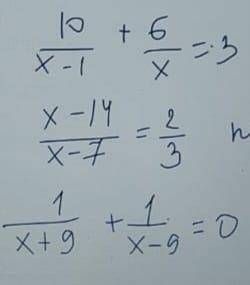 10/(x-1) + 6/x = 3
(x-14)/(x-7) = 2/3 n
1/(x+9) + 1/(x-9) = 0